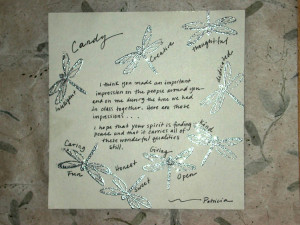 Candy
Creative
thoughtful
I think you made an important
impression on the people around you—
and on me during the time we had
in class together. Here are those
impressions....
I hope that your spirit is finding
peace and that it carries all of
these wonderful qualities
still.
Kind
Caring
Giving
Fun
Honest
Sweet
Open
Patricia